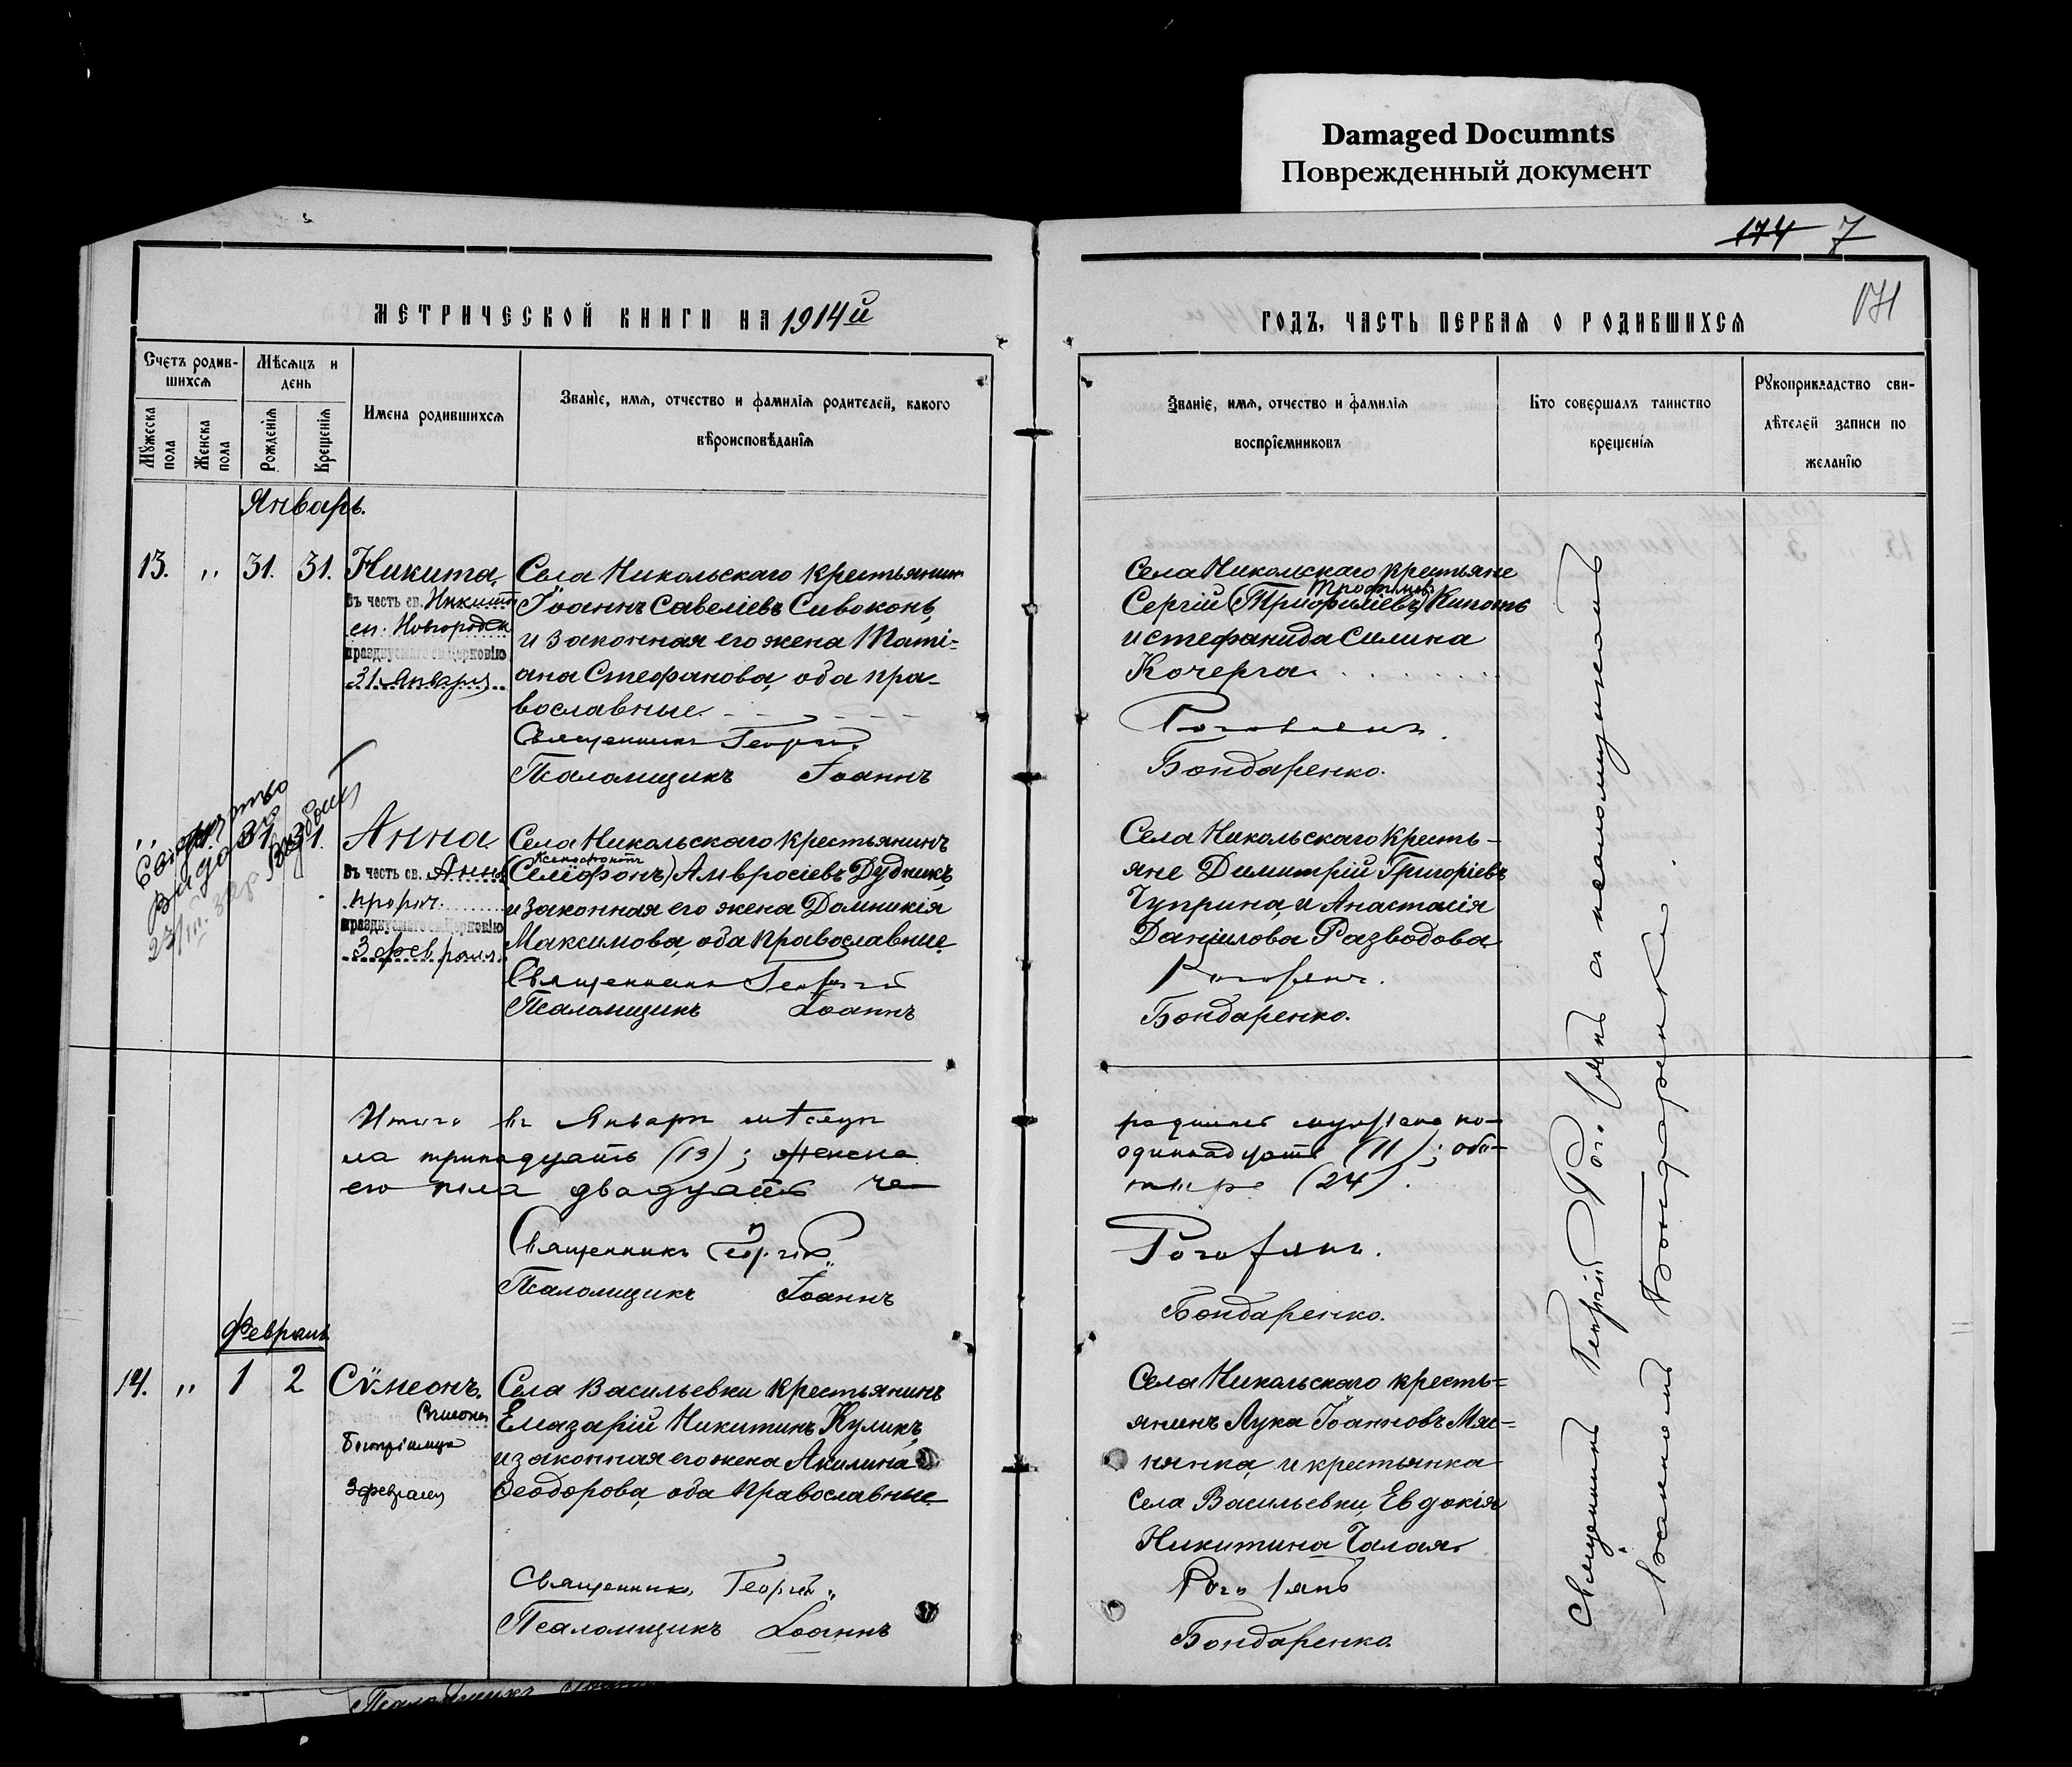 Damaged Documnts
Поврежденный документ
174 7
171
МЕТРИЧЕСКОЙ КНИГИ НА 1914й
Счетъ родив-
шихся
Мѣсяцъ и
день
Мужеска
пола
Женска
пола
Рожденія
Крещенія
Имена родившихся
Званіе, имя, отчество и фамилія родителей, какого
вѣроисповѣданія
Январь.
13. " 31. 31. Никита.
въ честь св. Никиты
еп. Новгородск
празднуемаго св. Церковію
31 Января
Села Никольскаго крестьянинъ
Іоаннъ Савеліевъ Сивоконь,
и законная его жена Таті-
ана Стефанова, оба пра-
вославные.
Священникъ Георгій
Псаломщикъ Іоаннъ
" 31. 31. Анна.
въ честь св. Анны
пророч.
празднуемаго св. Церковію
3 февраля
выдано
23/III
Села Никольскаго крестьянинъ
Ксенофонтъ
(Селіфонъ) Амвросіевъ Дудникъ,
и законная его жена Домникія
Максимова, оба православные
Священникъ Георгій
Псаломщикъ Іоаннъ
Итого въ Январѣ мѣсяцѣ
ла тринадцать (13); женска
его пола двадцать че
Священникъ Георгій
Псаломщикъ Іоаннъ
Февраль
14. " 1 2 Сѵмеонъ.
Симеона
Богопріимца
3 февраля
Села Васильевки крестьянинъ
Елеазарій Никитинъ Куликъ,
и законная его жена Акилина
Ѳеодорова, оба православные
Священникъ Георгій
Псаломщикъ Іоаннъ
ГОДЪ, ЧАСТЬ ПЕРВАЯ О РОДИВШИХСЯ
Званіе, имя, отчество и фамилія
воспріемниковъ
Кто совершалъ таинство
крещенія
Рукоприкладство сви-
дѣтелей записи по
желанію
Села Никольскаго крестьяне
Трофимовъ
Сергій (Триофиліевъ)
и Стефанида Силина
Кочерга.
Роговянъ.
Бондаренко.
Села Никольскаго кресть-
яне Димитрій Григоріевъ
Чуприна, и Анастасія
Даніилова Разводова
Роговянъ.
Бондаренко.
родилось мужеска по-
одиннадцать (11); обо-
тыре (24).
Роговянъ.
Бондаренко.
Села Никольскаго кресть=
янинъ Лука Іоанновъ Мяс=
нянка, и крестьянка
села Васильевки, Евдокія
Никитина Чалая.
Роговянъ
Бондаренко
Священникъ Георгій Роговянъ съ псаломщикомъ
Іоанномъ Бондаренко.
Псаломщикъ